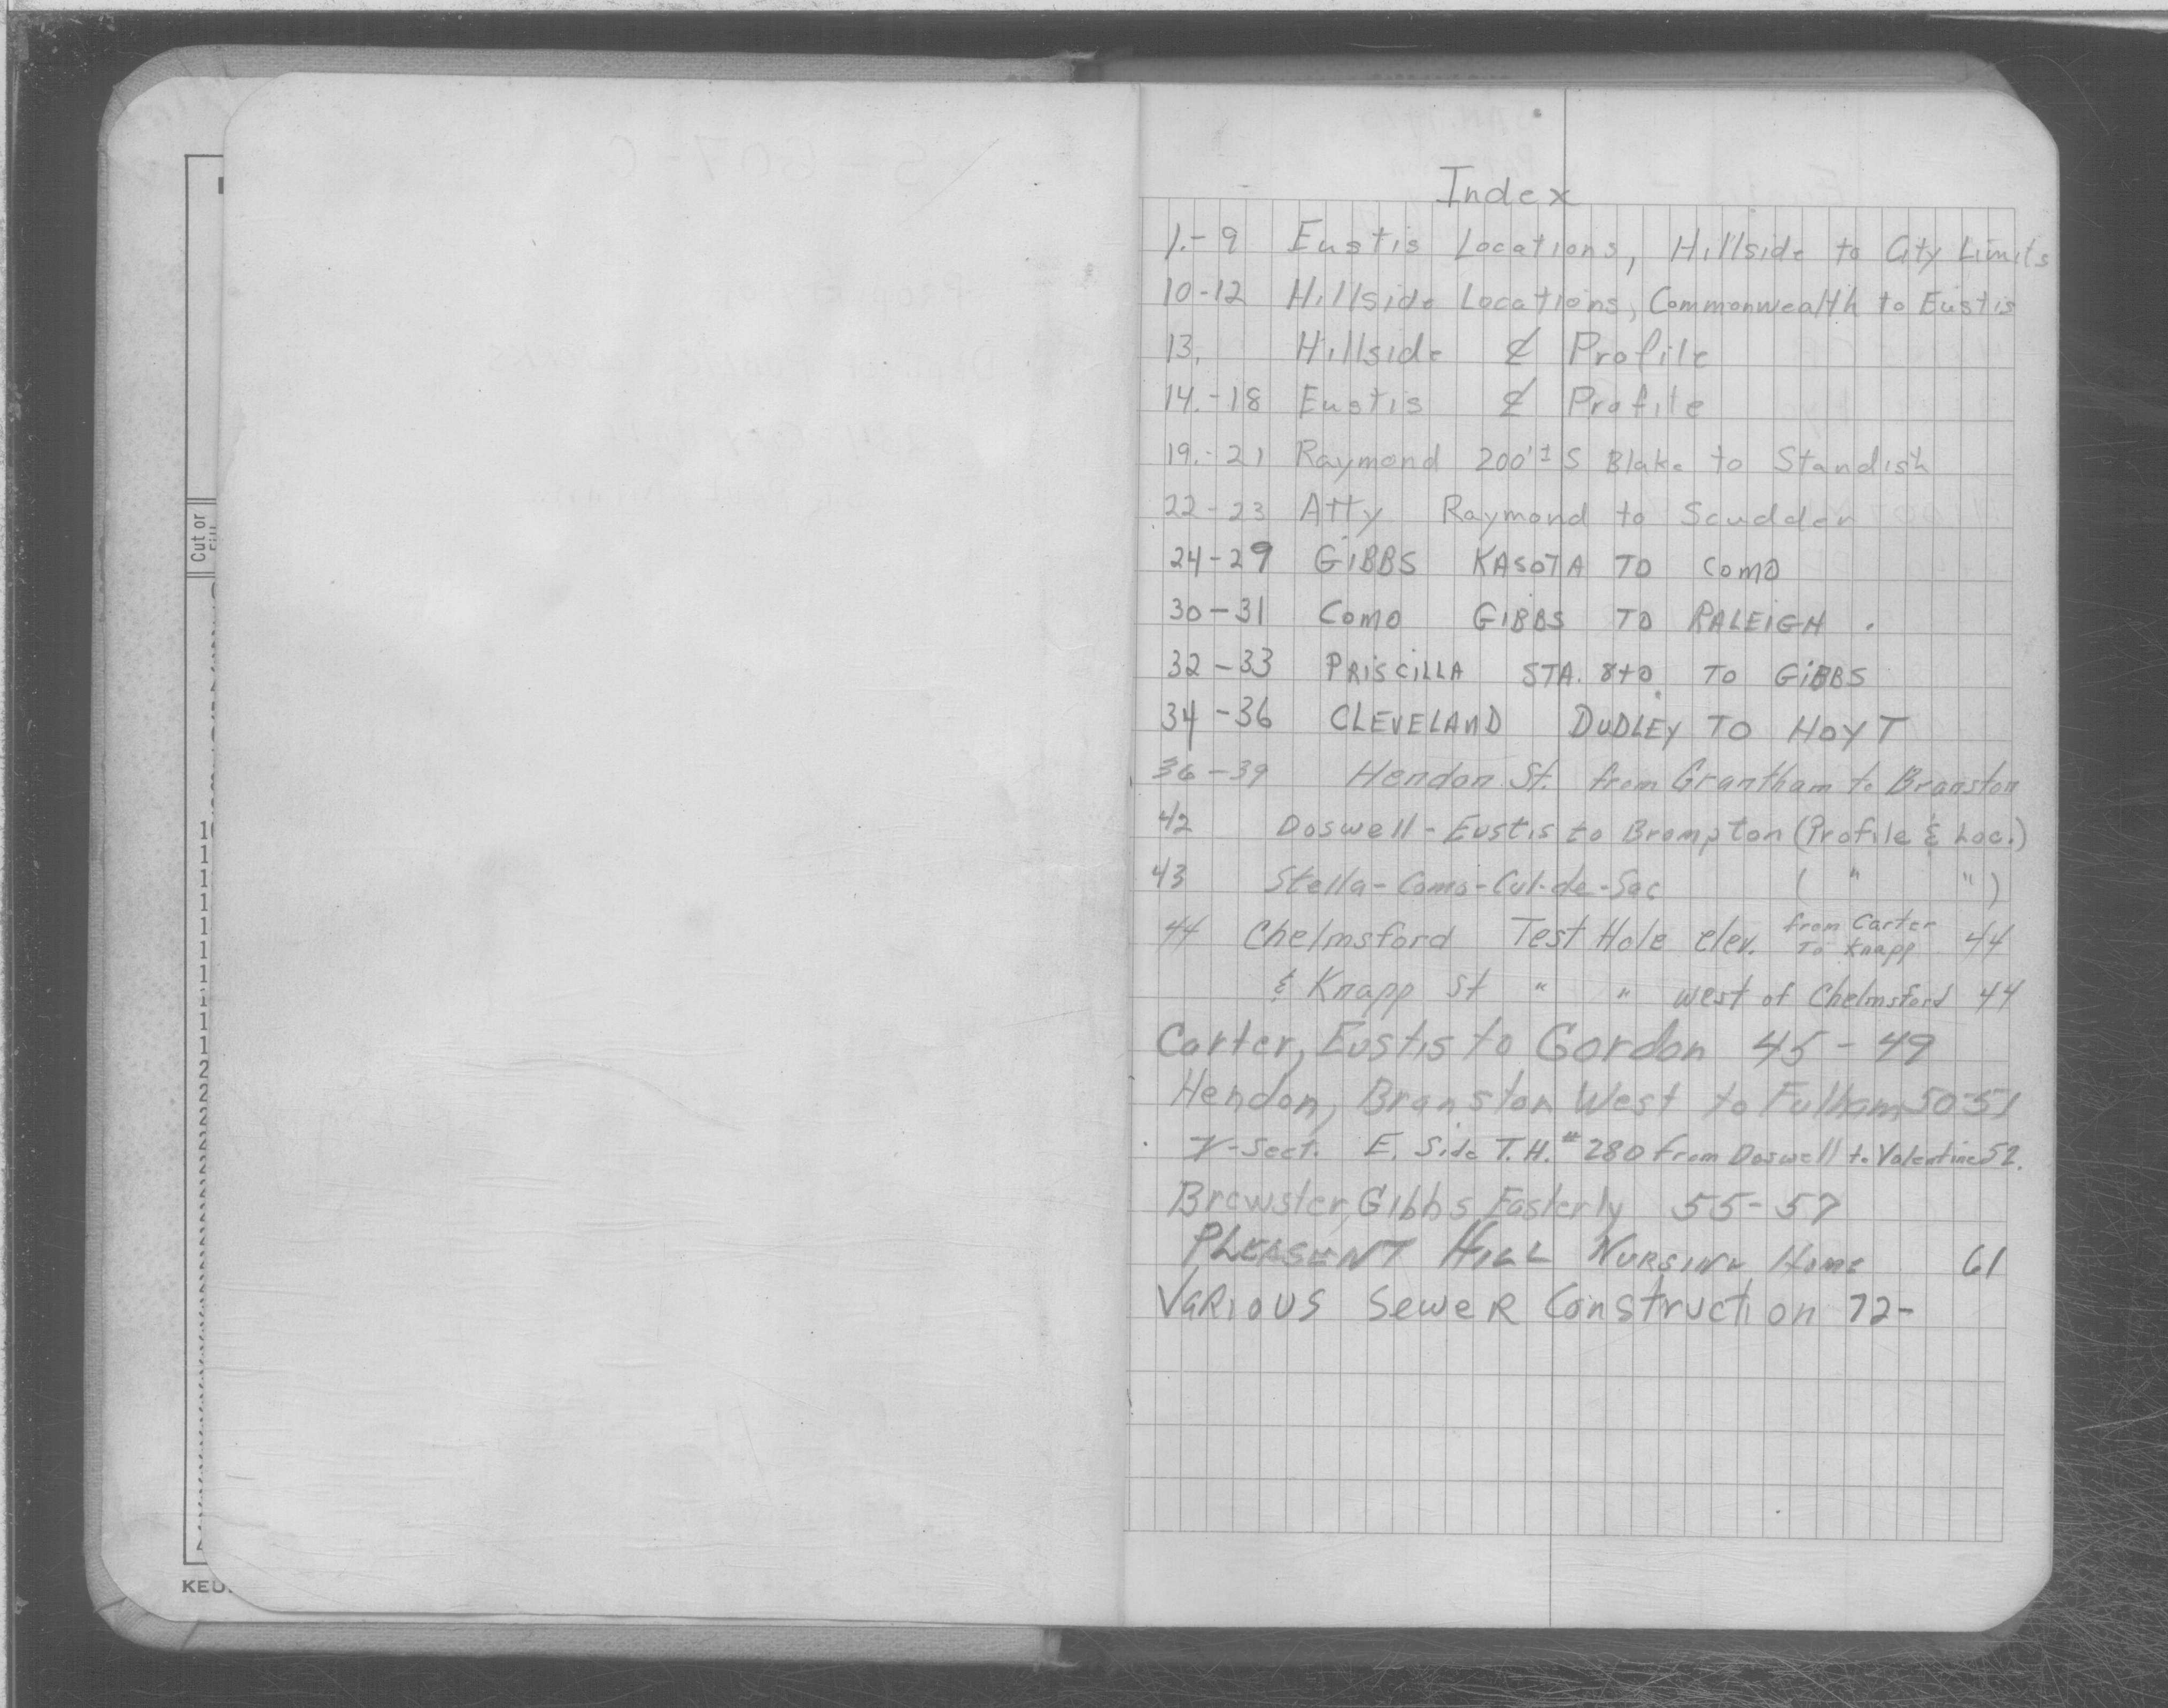 Index
1.-9 Eustis Locations, Hillside to City Limits
10-12 Hillside Locations, Commonwealth to Eustis
13. Hillside ℄ Profile
14.-18 Eustis ℄ Profile
19.-21 Raymond 200'± S Blake to Standish
22-23 Atty Raymond to Scudder
24-29 GIBBS KASOTA TO COMO
30-31 COMO GIBBS TO RALEIGH .
32-33 PRISCILLA STA. 8+0 TO GIBBS
34-36 CLEVELAND DUDLEY TO HOYT
36-39 Hendon St. from Grantham to Branston
42 Doswell - Eustis to Brompton (Profile & Loc.)
43 Stella-Como-Cul-de-Sac ( " " )
44 Chelmsford Test Hole elev. from Carter To Knapp 44
& Knapp St " " west of Chelmsford 44
Carter, Eustis to Gordon 45-49
Hendon, Branston West to Fulham 50-51
X-Sect. E. Side T.H. #280 from Doswell to Valentine 52.
Brewster, Gibbs Easterly 55-57
PLEASENT HILL NURSING Home 61
VARIOUS SeweR Construction 72-
Cut or
KEU